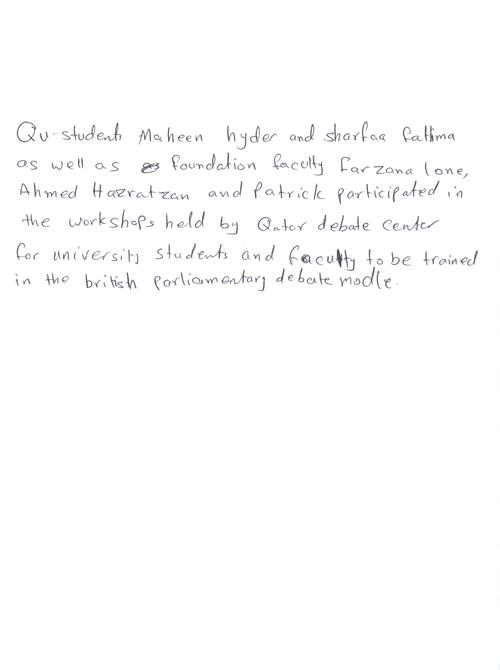 Qu-students Maheen hyder and sharfaa fatima
as well as foundation faculty Farzana lone,
Ahmed Hazratzan and Patrick participated in
the workshops held by Qatar debate center
for university students and faculty to be trained
in the british parliamentary debate modle.